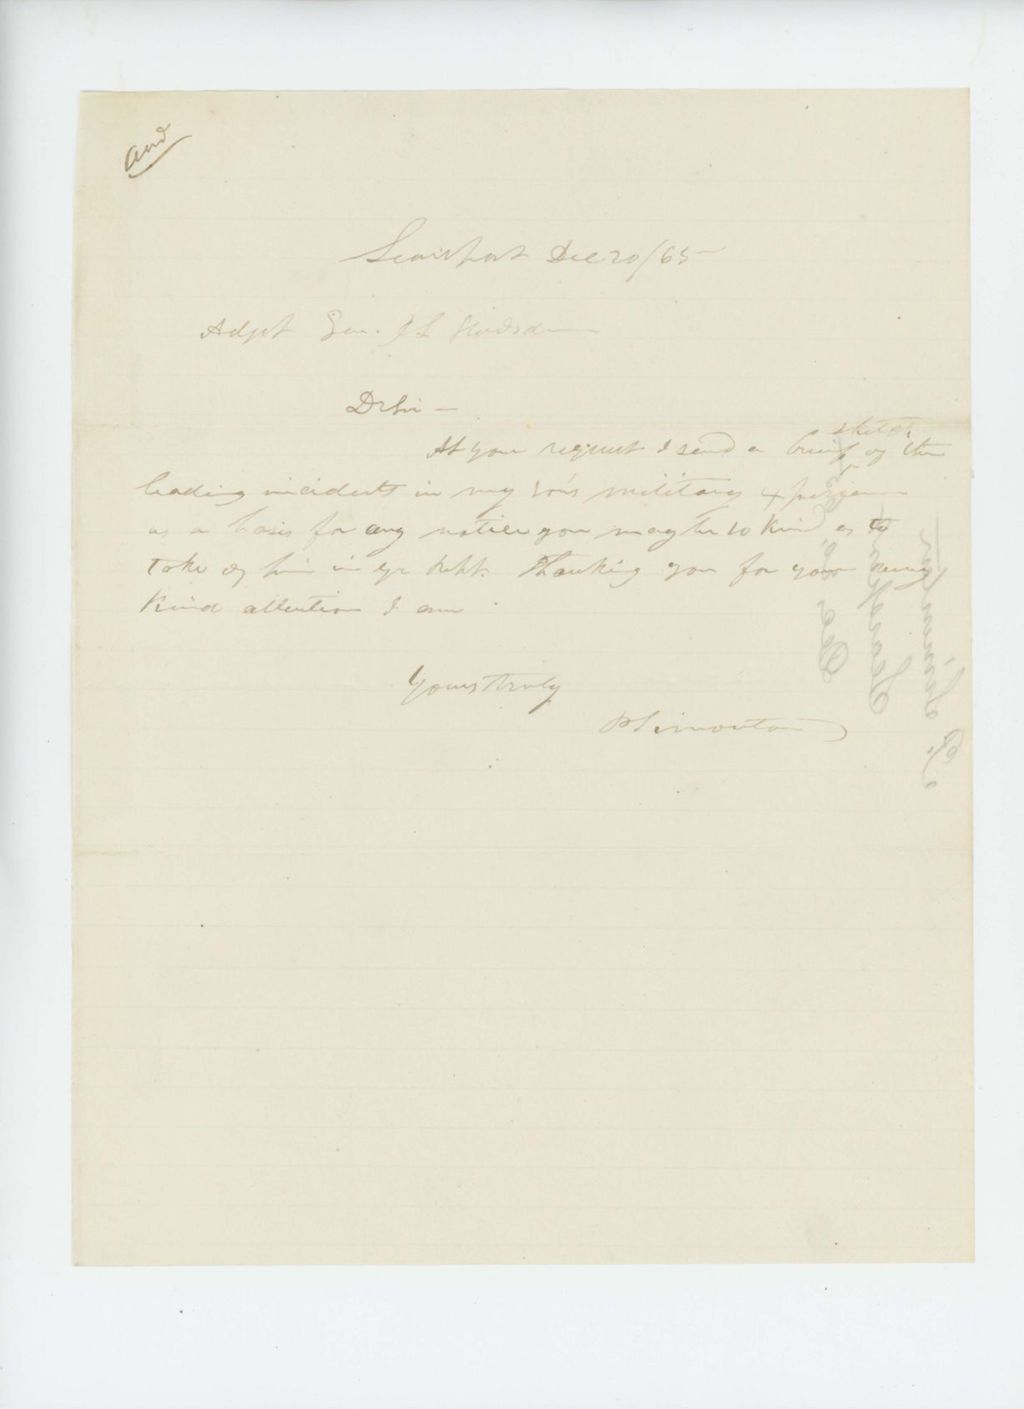 and
Searsport Dec 20/65
Adjt Gen. J L Hodsdon
Dr Sir —
At your request I send a brief sketch of the
leading incidents in my son's military experience
as a basis for any notice you may be so kind as to
take of him in yr Rept. Thanking you for your very
kind attention I am
Yours truly
P Simonton
P. Simonton
Searsport
Dec